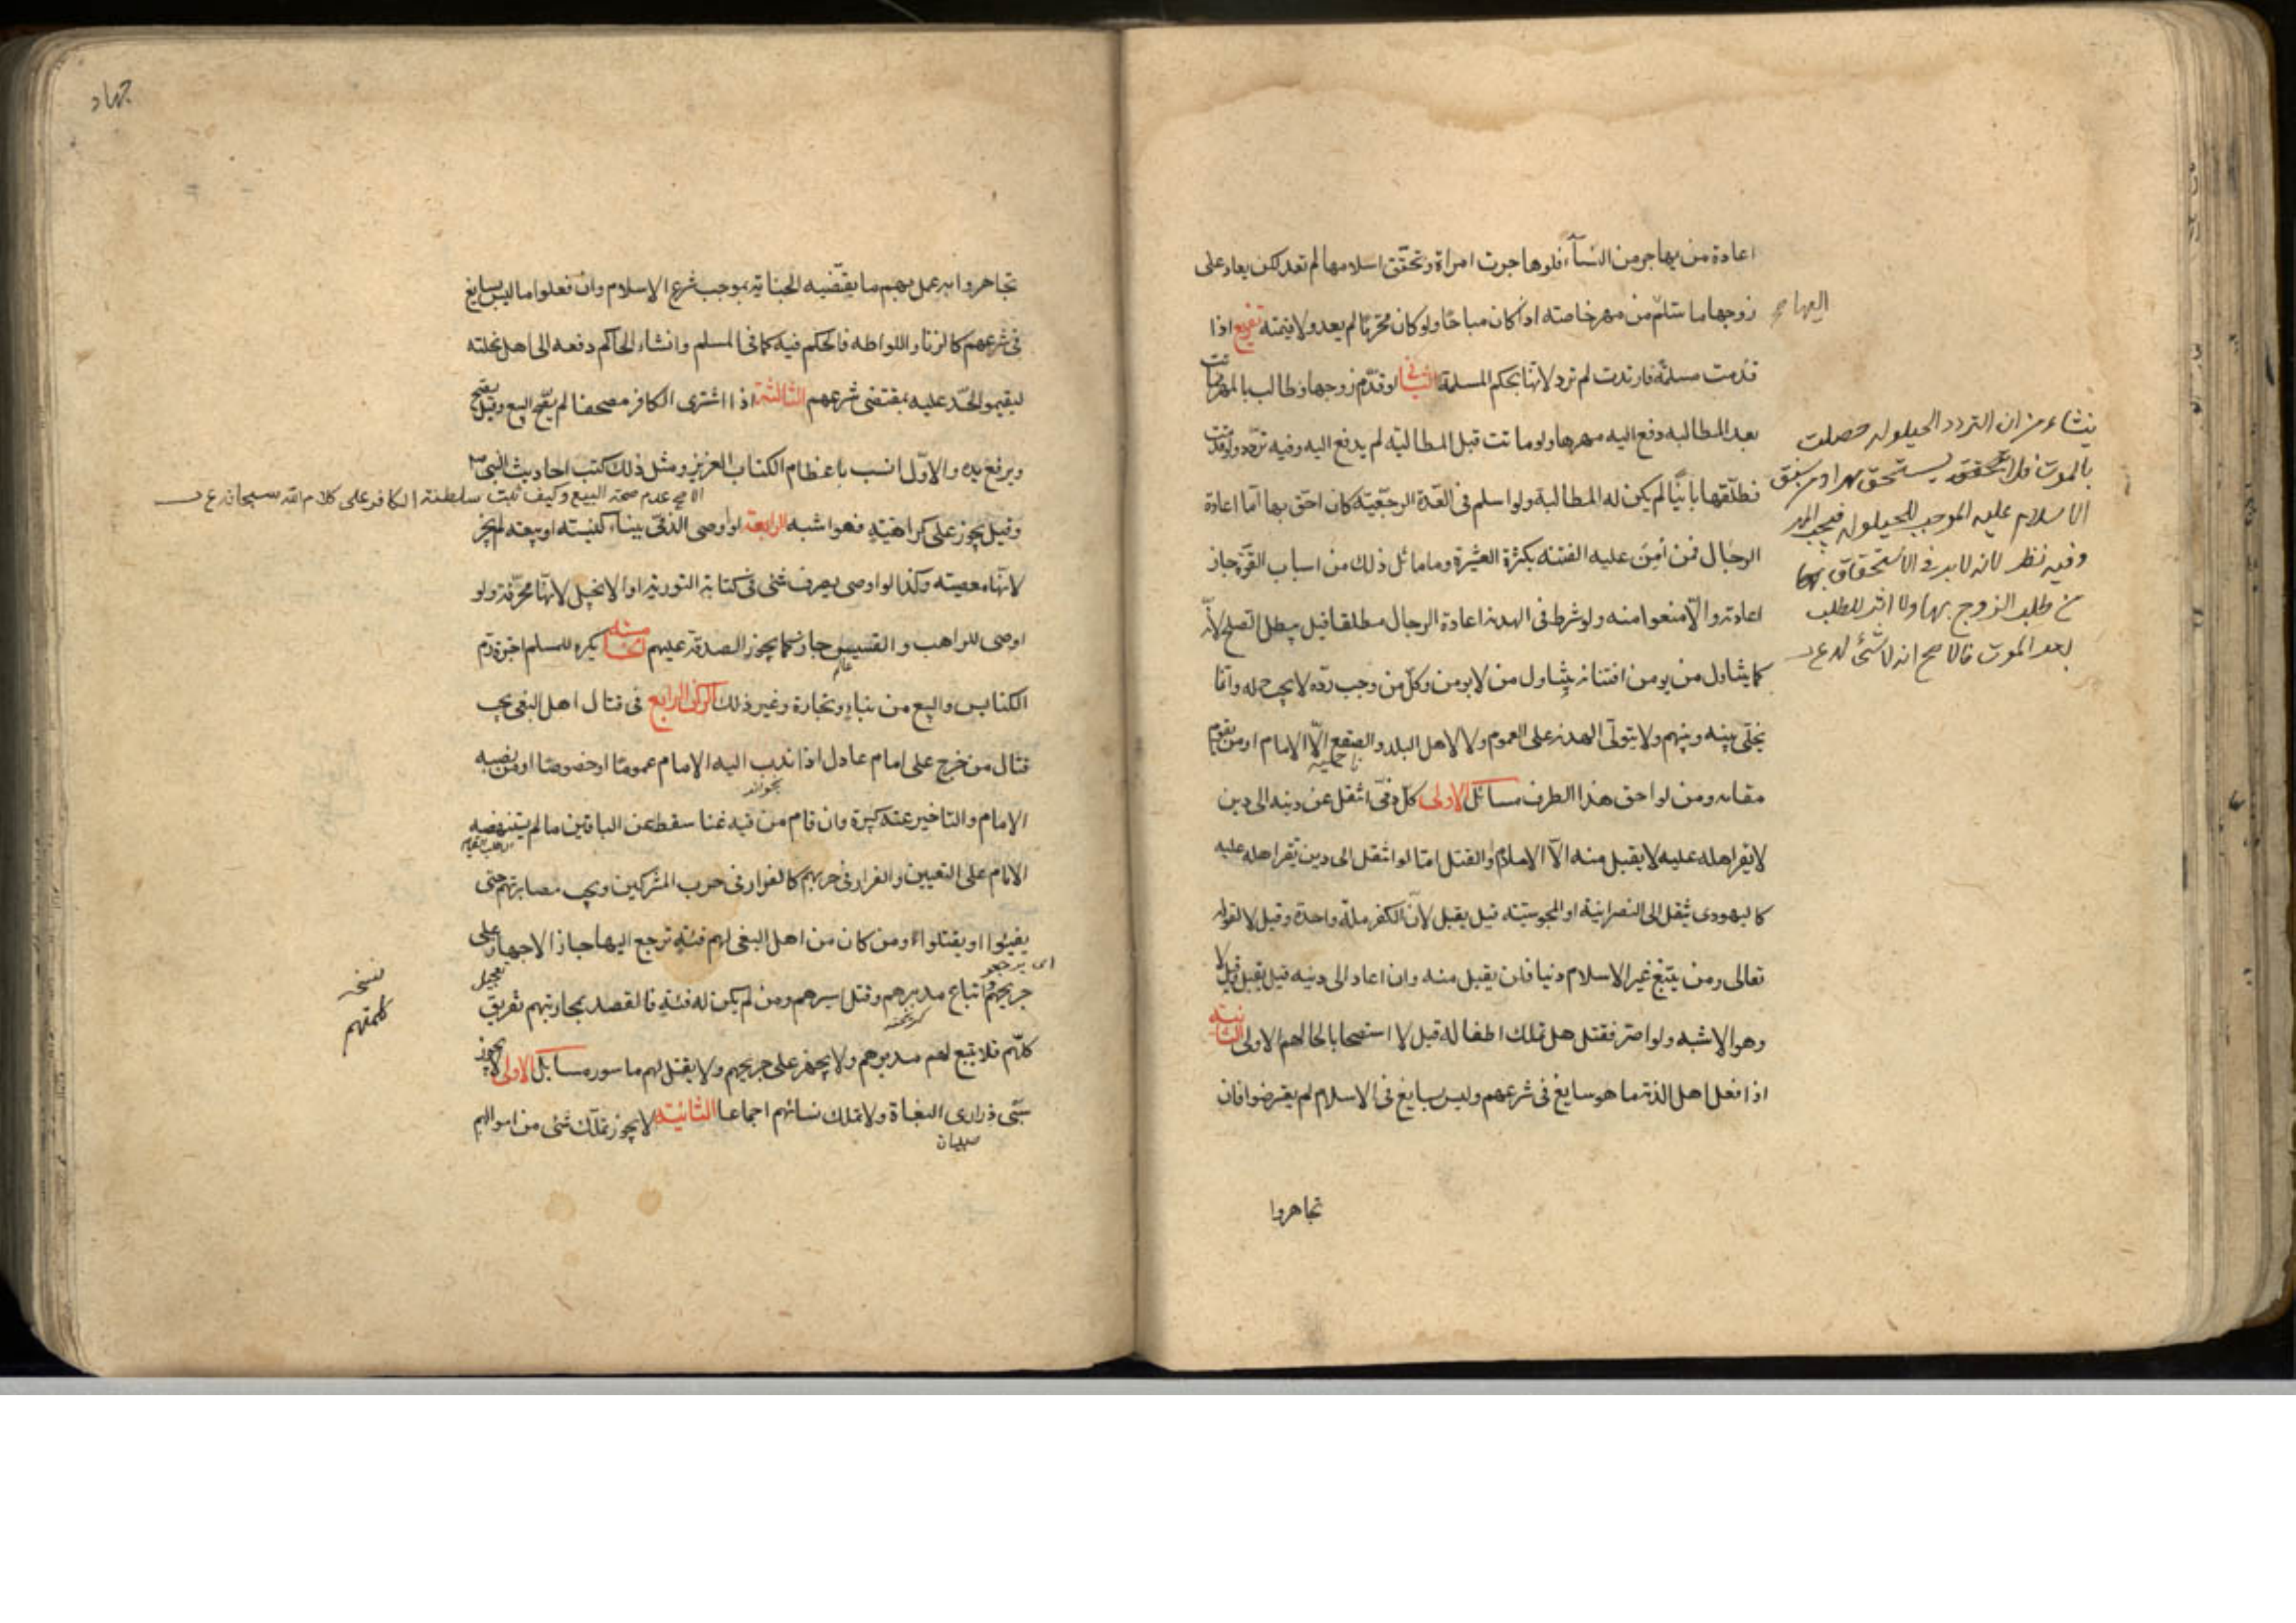 اعادة من يهاجر من النسآء فلو هاجرت امراة وتحقق اسلامها لم تعد لكن يعاد على
زوجها ما سلّم من مهر خاصته اذا كان مباحًا ولو كان محرّمًا لم يعد ولا قيمته تفريع اذا
قدمت مسلمة فارتدت لم ترد لانها بحكم المسلمة الثاني لو قدّم زوجها وطالب بالمهر فماتت
بعد المطالبه دفع اليه مهرها ولو ماتت قبل المطالبته لم يدفع اليه وفيه تردّد ولو قدمت
فطلّقها باينًا لم يكن له المطالبة ولو اسلم فى العدّة الرجعيّة كان احق بها امّا اعادة
الرجال فمن امِنَ عليه الفتنه بكثرة العشيرة وما ماثل ذلك من اسباب القوّة جاز
اعادته والّا منعوا منه ولو شرط فى الهدنه اعادة الرجال مطلقا قيل يبطل الصلح لانّه
كما يتناول من يومن افتتانه يتناول من لا يومن وكلّ من وجب ردّه لا يجب حمله وانّما
يخلّى بينه وبينهم ولا يتولّى الهدنه على العموم ولا لاهل البلد والصقع الّا الامام او من يقوم
مقامه ومن لواحق هذا الطرف مسائل الاولى كلّ ذمّى انتقل عن دينه الى دين
لا يقر اهله عليه لا يقبل منه الّا الاسلام او القتل امّا لو انتقل الى دين يقر اهله عليه
كاليهودى ينتقل الى النصرانية او المجوسيّة قيل يقبل لانّ الكفر ملّة واحدة وقيل لا لقوله
تعالى ومن يبتغ غير الاسلام دينا فلن يقبل منه وان اعاد الى دينه قيل يقبل وقيل لا
وهو الاشبه ولو اصرّ فقتل هل تملك اطفاله قيل لا استصحابا لحالهم الاولى الثانية
اذا فعل اهل الذمّه ما هو سايغ فى شرعهم وليس بسايغ فى الاسلام لم يعترضوا فان
تجاهروا
اليها
ينشاء من ان التردد الحيلوله حصلت
بالموت فلا يستحق مهرا ومن سبق
الاسلام عليه الموجب للحيلوله فيجب المهر
وفيه نظر لانه لابد فى الاستحقاق بها
من طلب الزوج بها ولا اثر للطلب
بعد الموت فالاصح انه لا شئ له
جهاد
تجاهروا به عمل بهم ما يقتضيه الجناية بموجب شرع الاسلام وان فعلوا ما ليس بسايغ
فى شرعهم كالزنا واللواطه فالحكم فيه كما فى المسلم وان شاء الحاكم دفعه الى اهل نحلته
ليقيموا الحدّ عليه بمقتضى شرعهم الثالثة اذا اشترى الكافر مصحفا لم يصح البيع وقيل يصح
ويرفع يده والاوّل انسب باعظام الكتاب العزيز ومثل ذلك كتب احاديث النبى ص
الاصح عدم صحة البيع وكيف تثبت سلطنة الكافر على كلام الله سبحانه
وقيل يجوز على كراهيّةٍ فهو اشبه الرابعة لو اوصى الذمّى ببناء كنيسته او بيعته لم يجز
لانّها معصيته وكذا لو اوصى بصرف شئى فى كتابة التورية او الانجيل لانّها محرّفة ولو
اوصى للراهب والقسيس جاز كما يجوز الصدقة عليهم الخامسة يكره للمسلم اجرة رمّ
الكنايس والبيع من بناءٍ ونجارة وغير ذلك الركن الرابع فى قتال اهل البغى يجب
قتال من خرج على امام عادل اذا ندب اليه الامام عمومًا او خصوصًا او من نصبه
الامام والتاخير عنه كبيرة وان قام من فيه غنا سقط عن الباقين ما لم يستنهضه
الامام على التعيين والفرار فى حربهم كالفرار فى حرب المشركين ويجب مصابرتهم حتى
يفيئوا او يقتلوا ومن كان من اهل البغى لهم فئةٍ ترجع اليها جاز الاجهاز على
اى يرجعو
جريحهم واتباع مدبرهم وقتل اسيرهم ومن لم يكن له فئةٍ فالقصد بمحاربتهم تفريق
كلّهم فلا يتبع لهم مدبرهم ولا يجهز على جريحهم ولا يقتل لهم ماسوره مسايل الاولى لا يجوز
سبى ذرارى البغاة ولا تملك نسائهم اجماعا الثانية لا يجوز تملّك شئى من اموالهم
صبيان
نسخه
كلمتهم